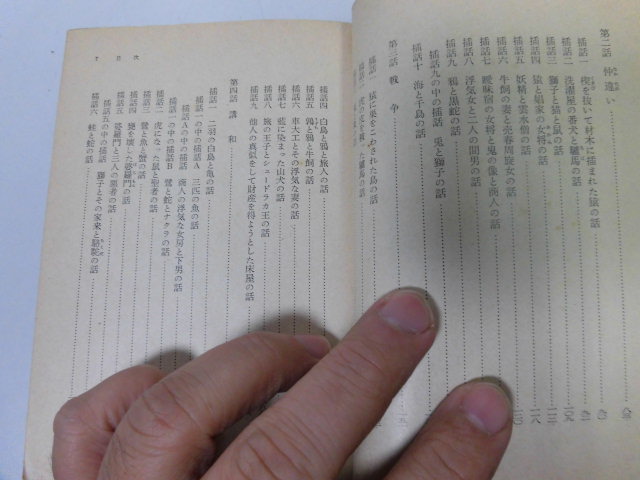 第二話 仲違い
挿話一 楔を抜いて材木に挟まれた猿の話
挿話二 洗濯屋の番犬と驢馬の話
挿話三 獅子と猫と鼠の話
挿話四 猿と娼家の女将の話
挿話五 妖精と雲水僧の話
挿話六 牛飼の妻と売春周旋女の話
挿話七 曖昧宿の女将と鬼の像と商人の話
挿話八 浮気女と二人の間男の話
挿話九 鴉と黒蛇の話
挿話九の中の挿話 兎と獅子の話
挿話十 海と千鳥の話
第三話 戦争
挿話一 猿に巣をこわされた鳥の話
挿話二 虎の皮を った驢馬の話
挿話四 白鳥と鴉と旅人の話
挿話五 鴉と鶉と牛飼の話
挿話六 車大工とその浮気な妻の話
挿話七 藍に染まった山犬の話
挿話八 旅の王子とシュードラカ王の話
挿話九 他人の真似をして財産を得ようとした床屋の話
第四話 講和
挿話一 二羽の白鳥と亀の話
挿話一の中の挿話A 三匹の魚の話
挿話Aの中の挿話 商人の浮気な女房と下男の話
挿話一の中の挿話B 鷺と蛇とナクラの話
挿話二 虎になった鼠と聖者の話
挿話三 鷺と魚と蟹の話
挿話四 甕を壊した婆羅門の話
挿話五 婆羅門と三人の悪者の話
挿話五の中の挿話 獅子とその家来と駱駝の話
挿話六 蛙と蛇の話
目次
7